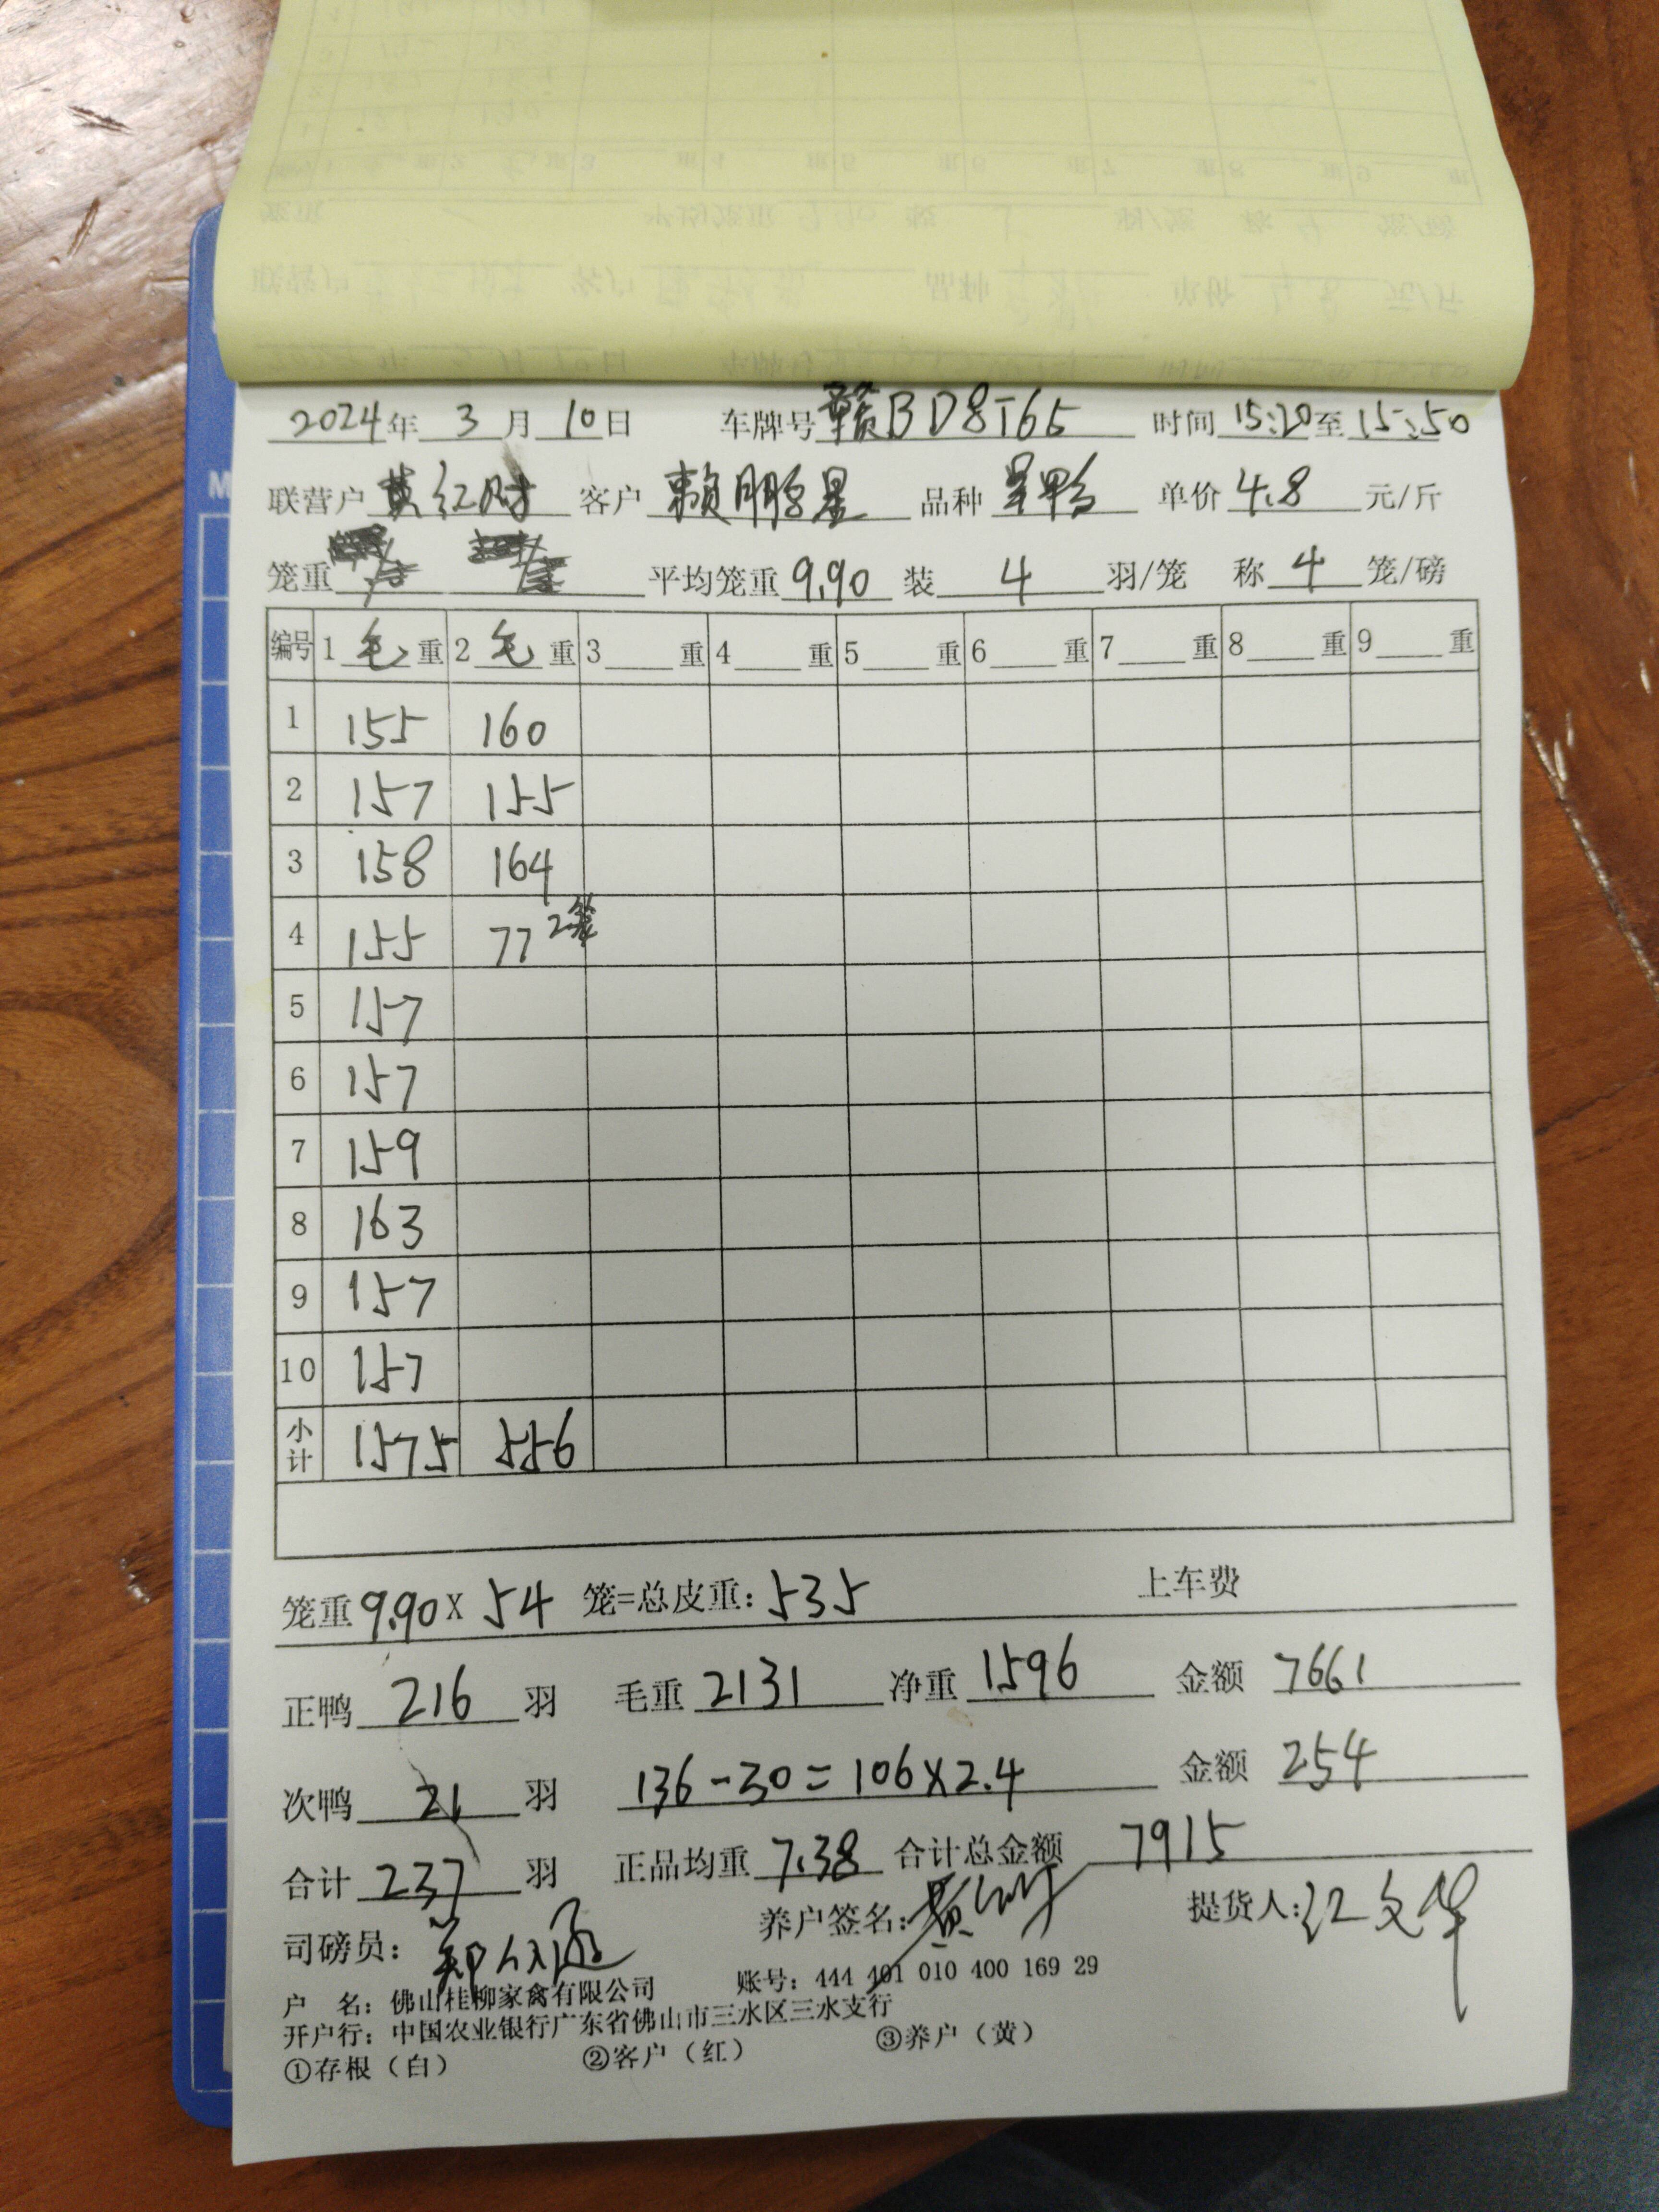 2024年 3月 10日 车牌号 赣BD8T65 时间 15:20至 15:50
联营户 黄红财 客户 赖鹏星 品种 呈鸭 单价 4.8 元/斤
笼重 平均笼重 9.90 装 4 羽/笼 称 4 笼/磅
编号 1 毛 重 2 毛 重 3 重 4 重 5 重 6 重 7 重 8 重 9 重
1 155 160
2 157 155
3 158 164
4 155 77 2笼
5 157
6 157
7 159
8 163
9 157
10 157
小计 1575 556
笼重 9.90 X 54 笼=总皮重: 535 上车费
正鸭 216 羽 毛重 2131 净重 1596 金额 7661
次鸭 21 羽 136-30=106×2.4 金额 254
合计 237 羽 正品均重 7.38 合计总金额 7915
司磅员: 养户签名: 提货人: 江文华
户 名: 佛山桂柳家禽有限公司 账号: 444 401 010 400 169 29
开户行: 中国农业银行广东省佛山市三水区三水支行
①存根（白） ②客户（红） ③养户（黄）